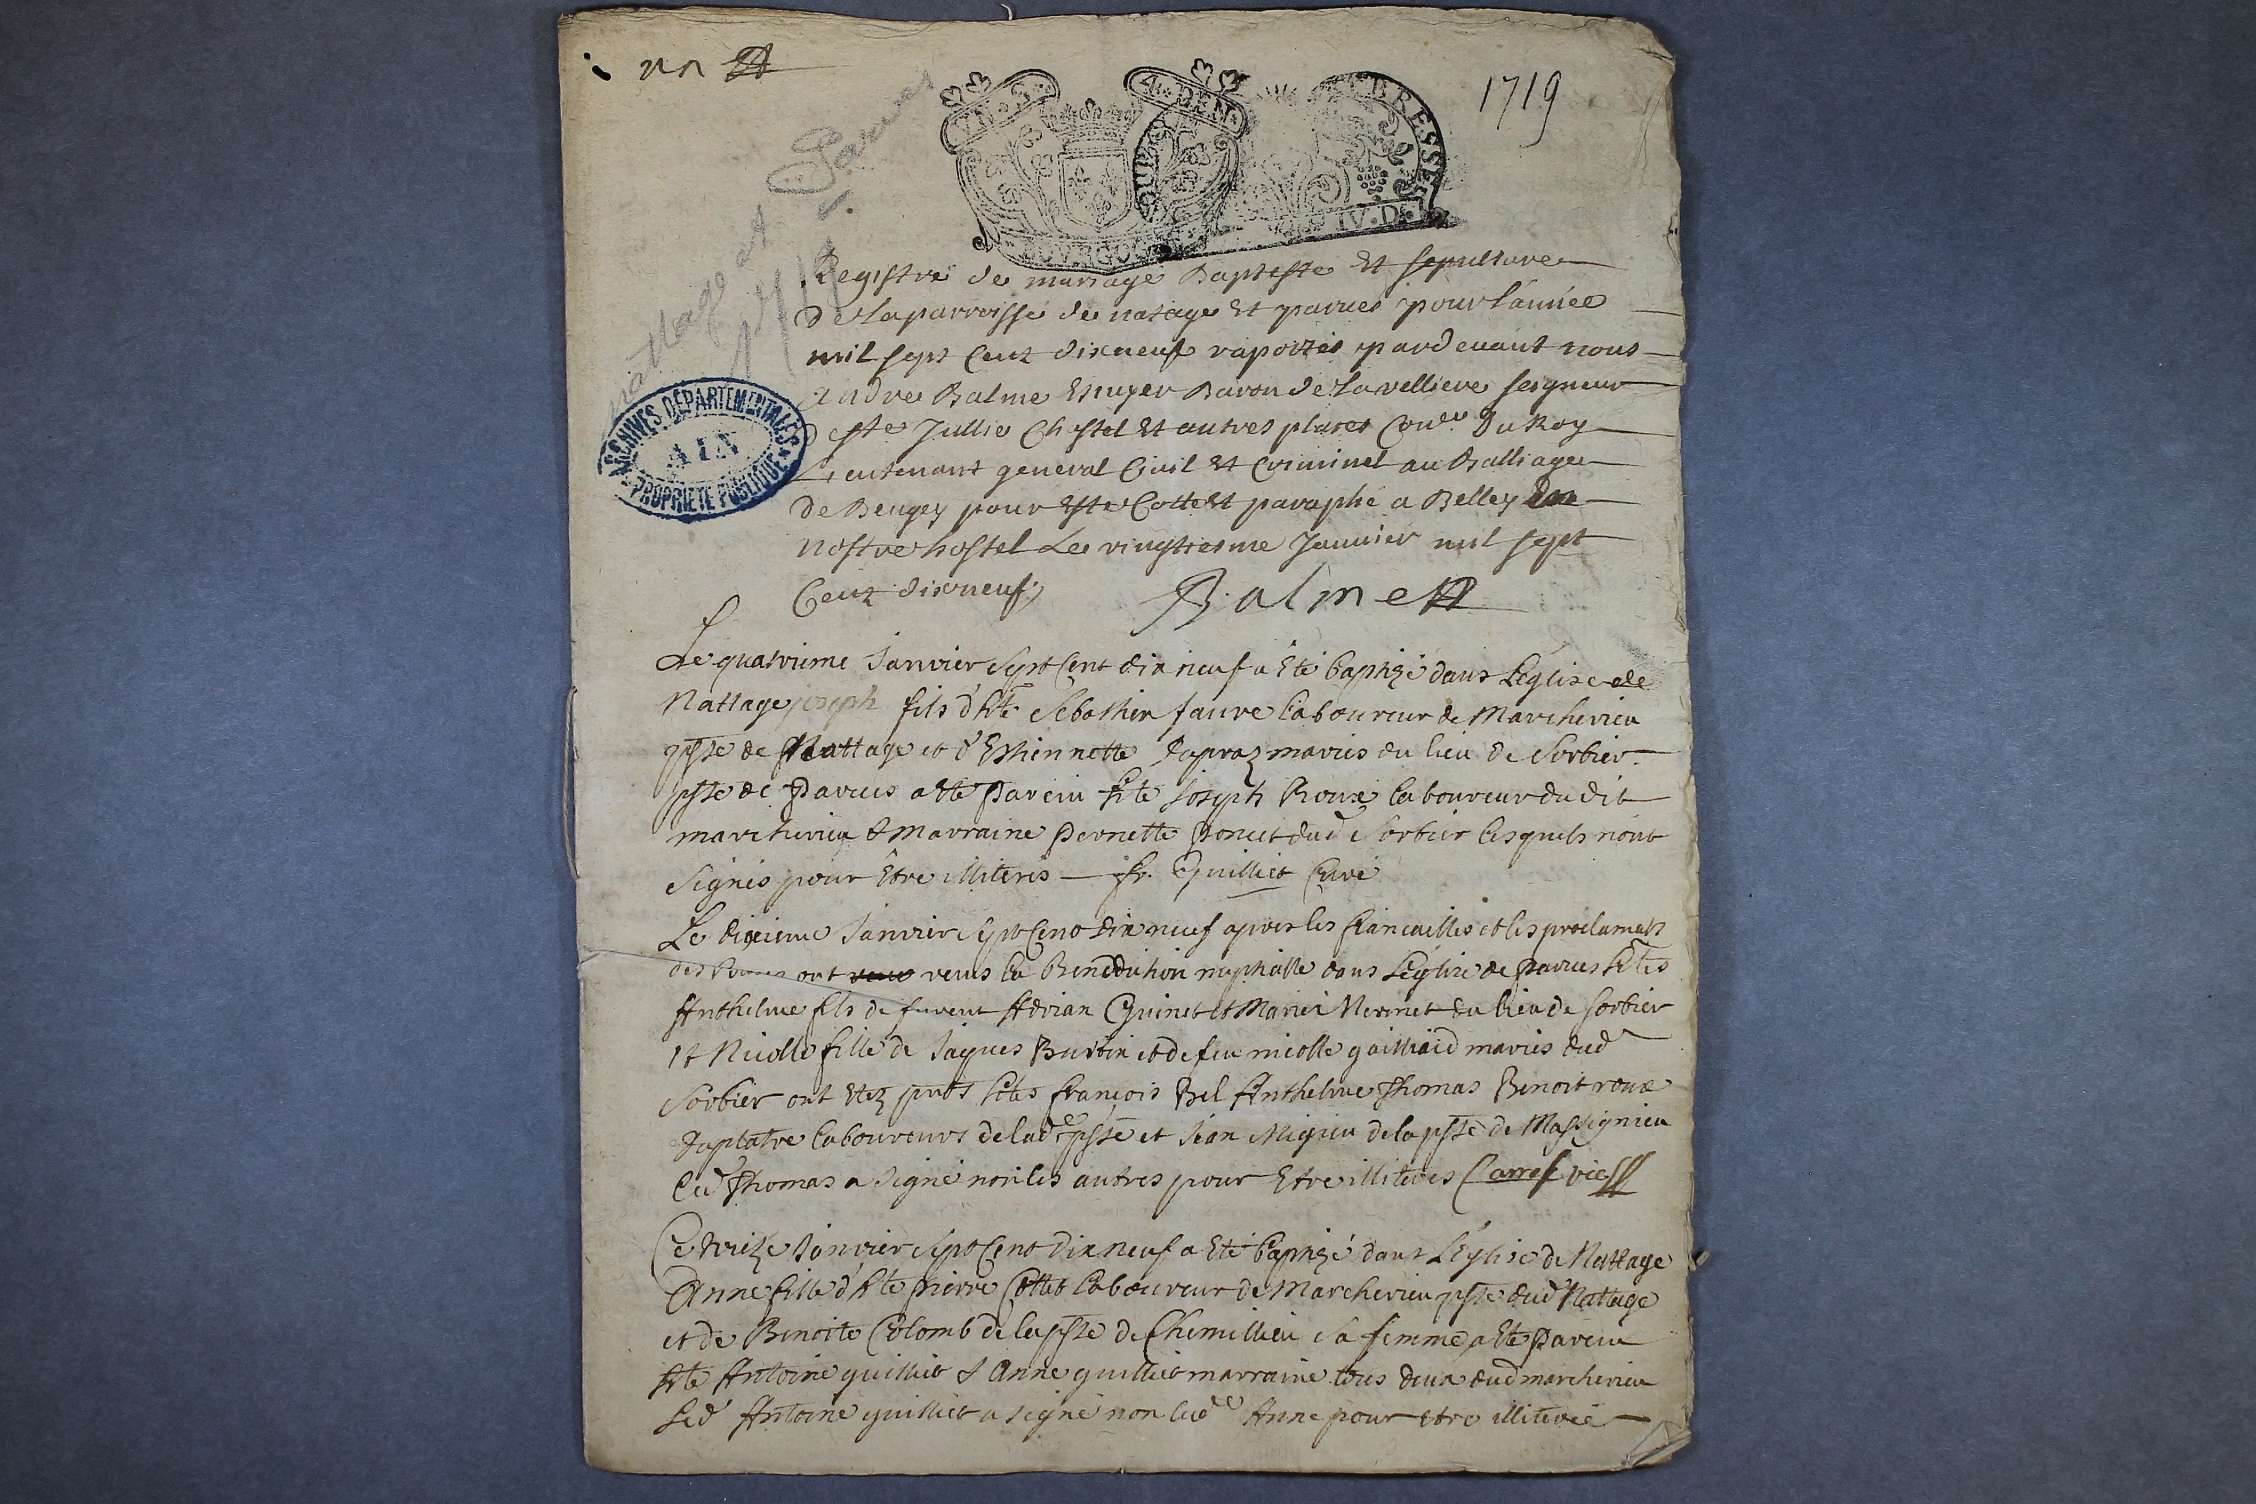 un
1719
4. DEN.
BRESSE
IV. D.
Nattage et Parves
1719
ARCHIVES DÉPARTEMENTALES
AIN
PROPRIÉTÉ PUBLIQUE
Registre de mariage Baptesste et sepulture
de la parroisse de natage et parves pour l'année
mil sept cent dixneuf raportés pardevant nous
andre Balme Escuyer Baron de la velliere seigneur
de ste Jullie Chastel et autres places Coner du Roy
Lieutenant general Civil et Criminel au Balliage
de Beugey pour estre Cotte et paraphé a Belley
nostre hostel Le vingtiesme Janvier mil sept
Cent dixneuf
Balme
Le quatrieme Janvier sept Cent dix neuf a été baptizé dans L'église de
Nattage joseph fils d'hte Sebasthien faure laboureur de Marcherieu
psse de Nattage et d'Esthiennette dupraz mariés du lieu de Sorbier
psse de Parves a été Parein hte Joseph Roux laboureur du dit
marcherieu & marraine Pernette Poncet dud Sorbier lesquels n'ont
signés pour être illiterés fr. Guilliet Curé
Le dixieme Janvier sept Cent dix neuf apres les fiancailles et les proclamats
des ont receus la Benediction nuptialle dans L'église de Parves htes
Anthelme fils de furent Adrian Guinet et Marie Mermet du lieu de Sorbier
et Nicolle fille de Jaques Burtin et de feu nicolle gailliard mariés dud
Sorbier ont etez pnts htes françois Bel Anthelme Thomas Benoit roux
duplatre laboureurs de lade psse et Jean Migieu de la psse de Massignieu
led Thomas a signé non les autres pour Etre illiterés Carrel vic
Ce treize Janvier sept Cent Dix neuf a été baptizé dans L'église de Nattage
Anne fille d'hte pierre Cottet laboureur de Marcherieu psse dud Nattage
et de Benoite Colomb de la psse de Chemillieu sa femme a été Parein
hte Antoine guilliet & Anne guilliet marraine tous deux dud marcherieu
led Antoine guilliet a signé non lade Anne pour etre illiterée